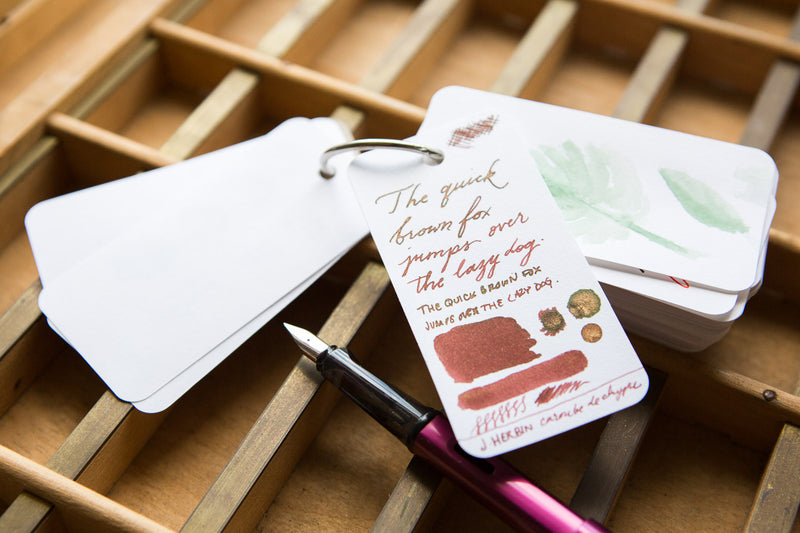 The quick
brown fox
jumps over
the lazy dog.
THE QUICK BROWN FOX
JUMPS OVER THE LAZY DOG.
J HERBIN caroube de chypre